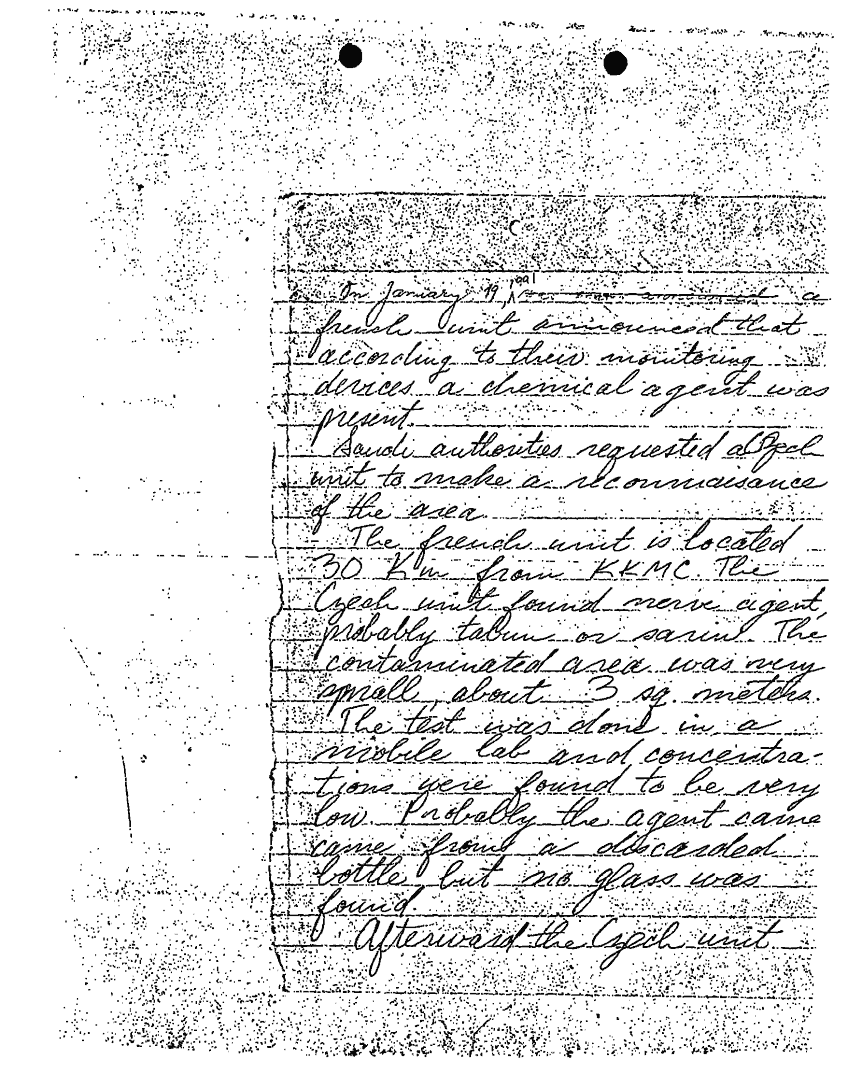 On January 19, 1991 a
french unit announced that
according to their monitoring
devices a chemical agent was
present.
Saudi authorities requested a Czech
unit to make a reconnaisance
of the area
The french unit is located
30 Km from KKMC. The
Czech unit found nerve agent,
probably tabun or sarin. The
contaminated area was very
small, about 3 sq. meters.
The test was done in a
mobile lab and concentra-
tions were found to be very
low. Probably the agent came
came from a discarded
bottle, but no glass was
found.
Afterward the Czech unit